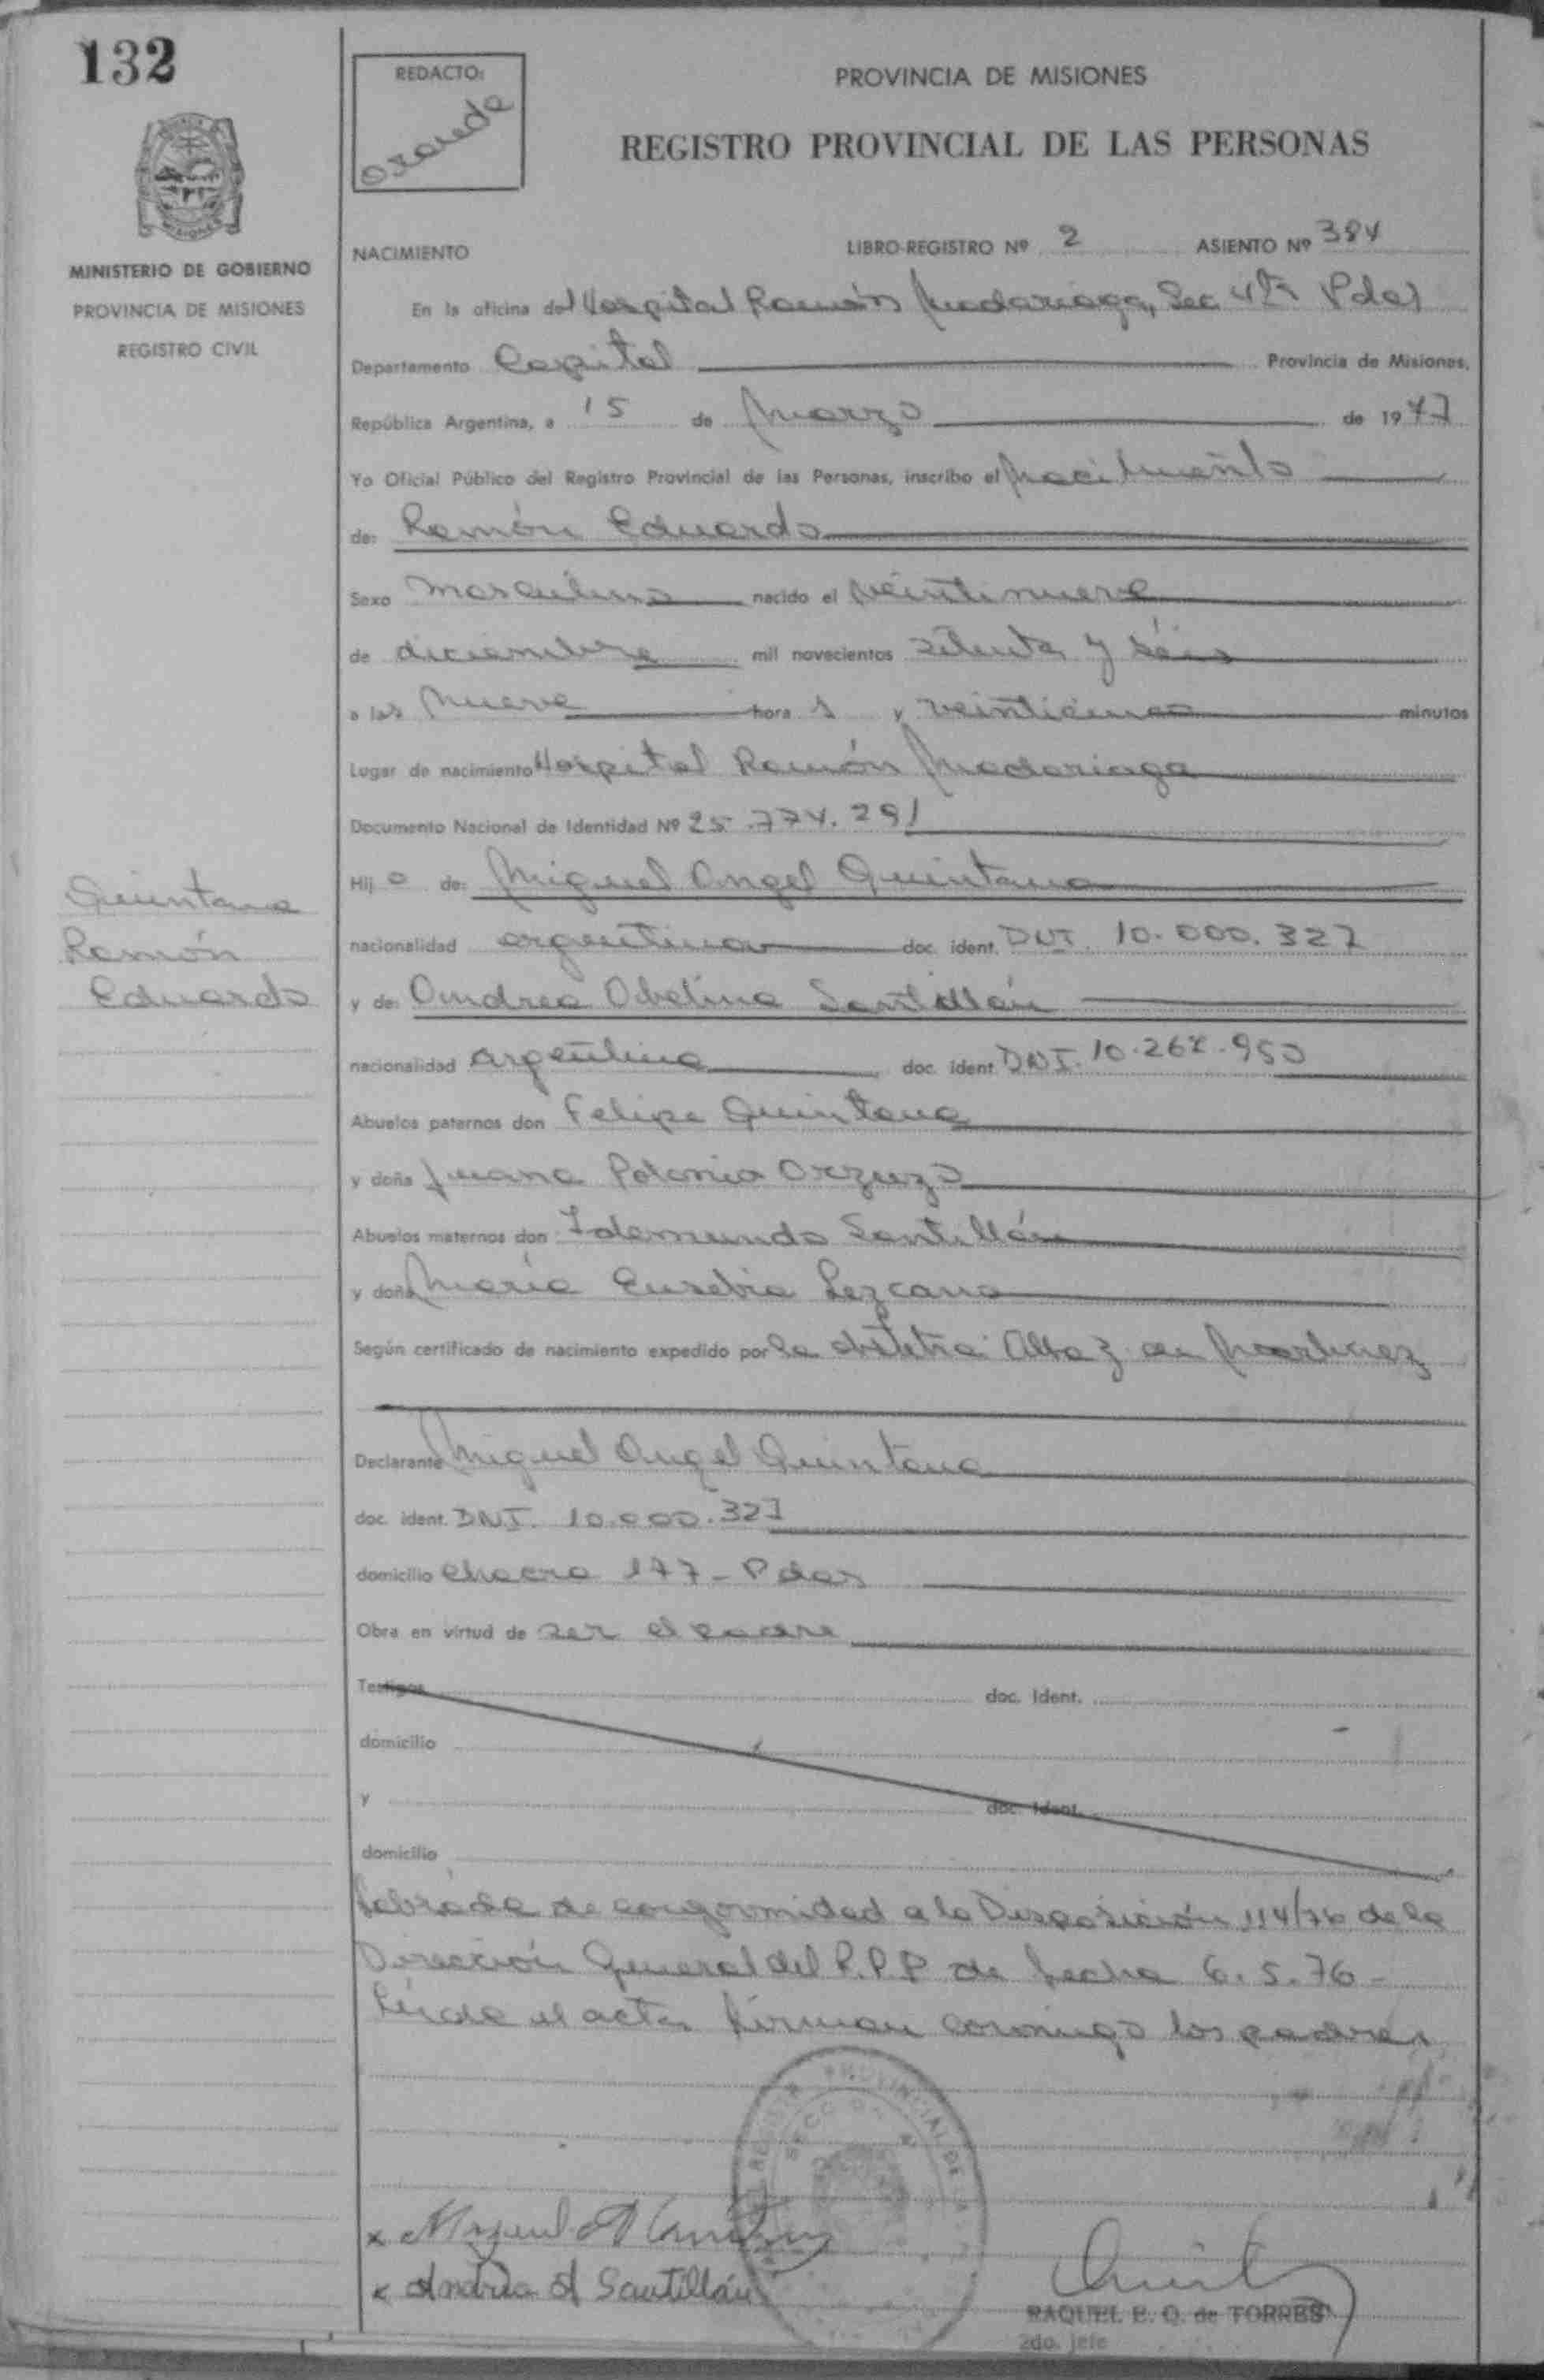 132
REDACTO:
PROVINCIA DE MISIONES
REGISTRO PROVINCIAL DE LAS PERSONAS
MINISTERIO DE GOBIERNO
PROVINCIA DE MISIONES
REGISTRO CIVIL
NACIMIENTO LIBRO-REGISTRO Nº 2 ASIENTO Nº 384
En la oficina del Hospital Ramón Madariaga, Sec 4ta Pdas
Departamento Capital Provincia de Misiones,
República Argentina, a 15 de Marzo de 1977
Yo Oficial Público del Registro Provincial de las Personas, inscribo el Nacimiento
de: Ramón Eduardo
Sexo masculino nacido el veintinueve
de diciembre mil novecientos setenta y séis
a las Nueve hora s y veinticinco minutos
Lugar de nacimiento Hospital Ramón Madariaga
Documento Nacional de Identidad Nº 25.774.291
Hij o de: Miguel Angel Quintana
Quintana
Ramón
Eduardo
nacionalidad argentina doc. ident. DNI. 10.000.327
y de: Andrea Obelina Santillán
nacionalidad argentina doc. ident. DNI. 10.267.950
Abuelos paternos don Felipe Quintana
y doña Juana Polonia Orzuza
Abuelos maternos don Idemundo Santillán
y doña María Eusebia Lezcano
Según certificado de nacimiento expedido por la obstetra Alba Z de Martinez
Declarante Miguel Angel Quintana
doc. ident. DNI. 10.000.327
domicilio Chacra 147 - Pdas
Obra en virtud de ser el padre
Testigos doc. Ident.
domicilio
y doc. Ident.
domicilio
labrada de conformidad a la Disposición 114/76 de la
Dirección General del R.P.P de fecha 6.5.76 -
Leída el acta, firman conmigo los padres
x Miguel A
x Andrea A Santillán
RAQUEL E. Q. de TORRES
2do. jefe